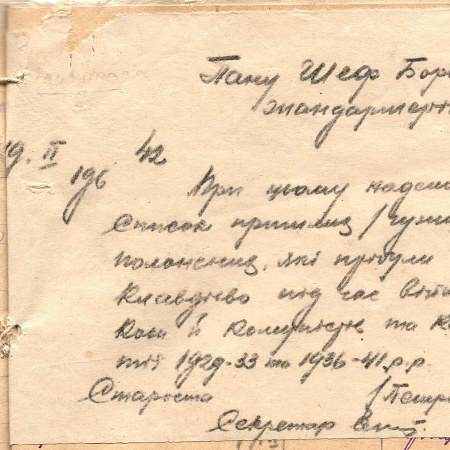 Пану Шеф Бор
жандармерії
19. II 42
196
При цьому надси
список прийшлих / чужи
полонених, які прибули
Клавдієво під час війни
кова й комуністів та к
тів 1929-33 та 1936-41 р.р.
Староста /Петр
Секретар